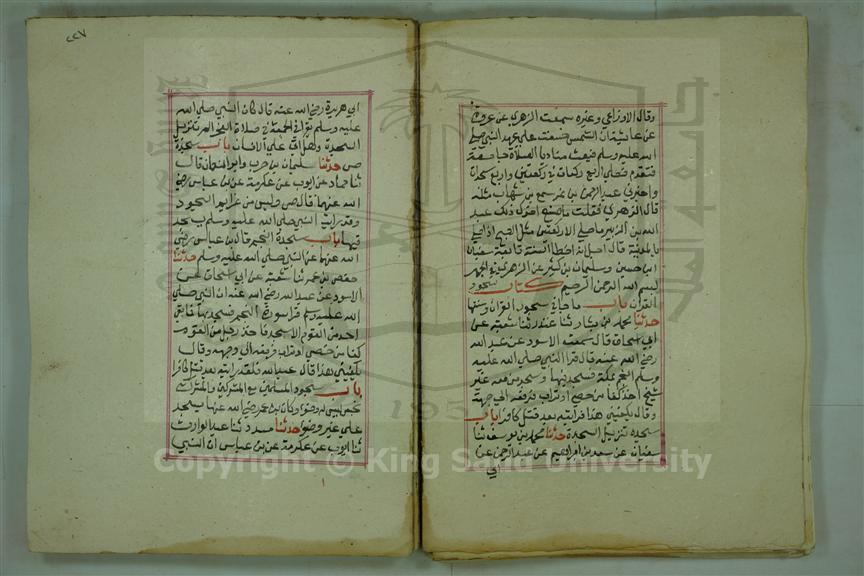 وقال الاوزاعي وغيره سمعت الزهري عن عروة
عن عائشة ان الشمس خسفت على عهد النبي صلى
الله عليه وسلم فبعث مناديا الصلاة جامعة
فتقدم فصلى اربع ركعات في ركعتين واربع سجدات
واخبرني عبد الرحمن بن نمر سمع بن شهاب مثله
قال الزهري فقلت ما صنع اخوك ذلك عبد
الله بن الزبير ما صلى الا ركعتين مثل الصبح اذ صلى
بالمدينة قال اجل انه اخطأ السنة تابعه سفيان
ابن حسين وسليمان بن كثير عن الزهري في الجهر
بسم الله الرحمن الرحيم كتاب سجود
القران باب ما جاء في سجود القران وسنتها
حدثنا محمد بن بشار ثنا غندر ثنا شعبة عن
ابي اسحاق قال سمعت الاسود عن عبد الله
رضي الله عنه قال قرا النبي صلى الله عليه
وسلم النجم بمكة فسجد فيها وسجد من معه غير
شيخ اخذ كفا من حصى او تراب فرفعه الى جبهته
وقال يكفيني هذا فرايته بعد قتل كافرا باب
سجدة تنزيل السجدة حدثنا محمد بن يوسف ثنا
سفيان عن سعد بن ابراهيم عن عبد الرحمن عن
ابي
٢٢٧
ابي هريرة رضي الله عنه قال كان النبي صلى الله
عليه وسلم يقرا في الجمعة في صلاة الفجر الم تنزيل
السجدة وهل اتى على الانسان باب سجدة
ص حدثنا سليمان بن حرب وابو النعمان قال
ثنا حماد عن ايوب عن عكرمة عن بن عباس رضي
الله عنهما قال ص ليس من عزائم السجود
وقد رايت النبي صلى الله عليه وسلم يسجد
فيها باب سجدة النجم قال بن عباس رضي
الله عنهما عن النبي صلى الله عليه وسلم حدثنا
حفص بن عمر ثنا شعبة عن ابي اسحاق عن
الاسود عن عبد الله رضي الله عنه ان النبي صلى
الله عليه وسلم قرا سورة النجم فسجد بها فما بقي
احد من القوم الا سجد فاخذ رجل من القوم
كفا من حصى او تراب فرفعه الى وجهه وقال
يكفيني هذا قال عبد الله فلقد رايته بعد قتل كافرا
باب سجود المسلمين مع المشركين والمشرك
نجس ليس له وضوء وكان بن عمر رضي الله عنهما يسجد
على غير وضوء حدثنا مسدد ثنا عبد الوارث
ثنا ايوب عن عكرمة عن بن عباس ان النبي
Copyright © King Saud University